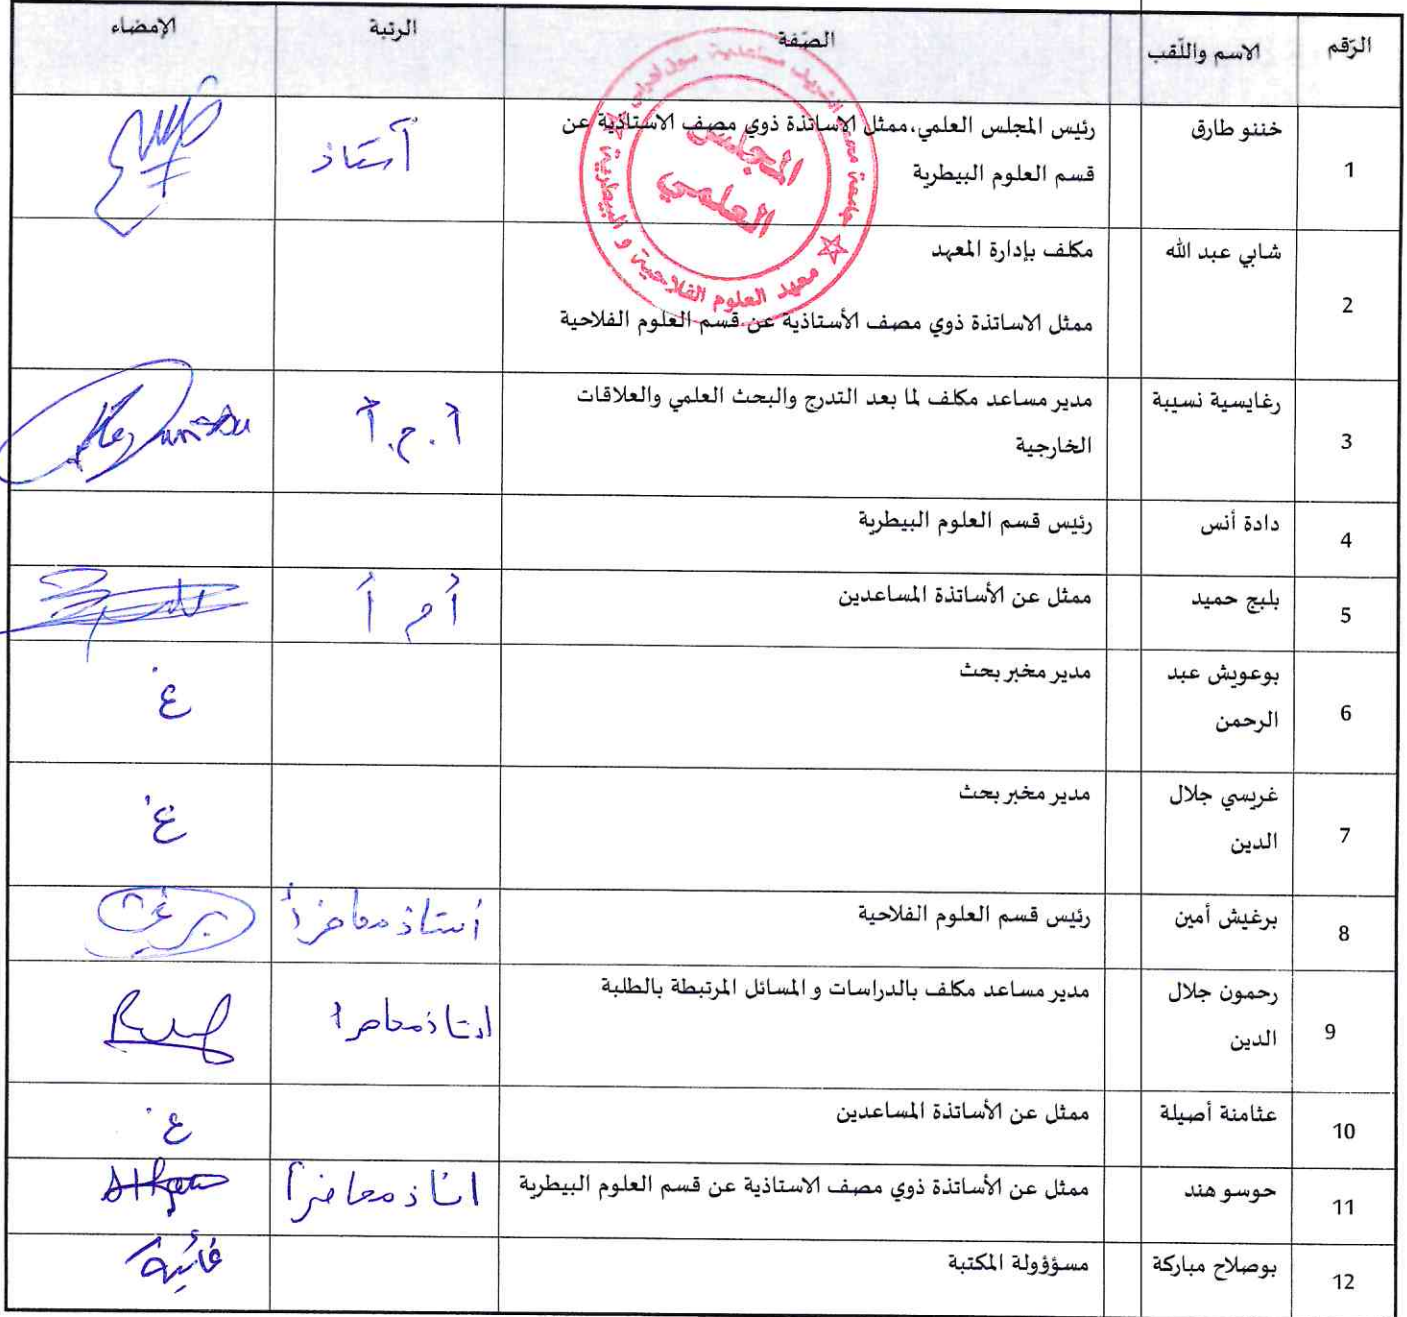 الرّقم الاسم واللّقب الصّفة الرتبة الإمضاء
1 خننو طارق رئيس المجلس العلمي،ممثل الاساتذة ذوي مصف الاستاذية عن أستاذ
قسم العلوم البيطرية
2 شابي عبد الله مكلف بإدارة المعهد
ممثل الاساتذة ذوي مصف الأستاذية عن قسم العلوم الفلاحية
3 رغايسية نسيبة مدير مساعد مكلف لما بعد التدرج والبحث العلمي والعلاقات أ.ح.أ
الخارجية
4 دادة أنس رئيس قسم العلوم البيطرية
5 بليح حميد ممثل عن الأساتذة المساعدين أ م أ
6 بوعويش عبد مدير مخبر بحث غ
الرحمن
7 غريسي جلال مدير مخبر بحث غ
الدين
8 برغيش أمين رئيس قسم العلوم الفلاحية أستاذ محاضر أ
9 رحمون جلال مدير مساعد مكلف بالدراسات و المسائل المرتبطة بالطلبة استاذ محاضر أ
الدين
10 عثامنة أصيلة ممثل عن الأساتذة المساعدين غ
11 حوسو هند ممثل عن الأساتذة ذوي مصف الاستاذية عن قسم العلوم البيطرية استاذ محاضر أ
12 بوصلاح مباركة مسؤؤولة المكتبة غائبة
جامعة محمد الشريف مساعدية سوق اهراس
معهد العلوم الفلاحية و البيطرية
المجلس
العلمي